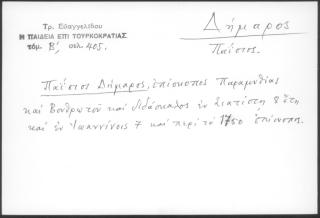 Τρ. Εὐαγγελίδου
Η ΠΑΙΔΕΙΑ ΕΠΙ ΤΟΥΡΚΟΚΡΑΤΙΑΣ
τόμ. Β', σελ. 405.
Δήμαρος
Παΐσιος.
Παΐσιος Δήμαρος, ἐπίσκοπος Παραμυθίας
καὶ Βουθρωτοῦ καὶ διδάσκαλος ἐν Σιατίστῃ 8 ἔτη
καὶ ἐν Ἰωαννίνοις 7 καὶ περὶ τὸ 1750 ἐπίσκοπος.